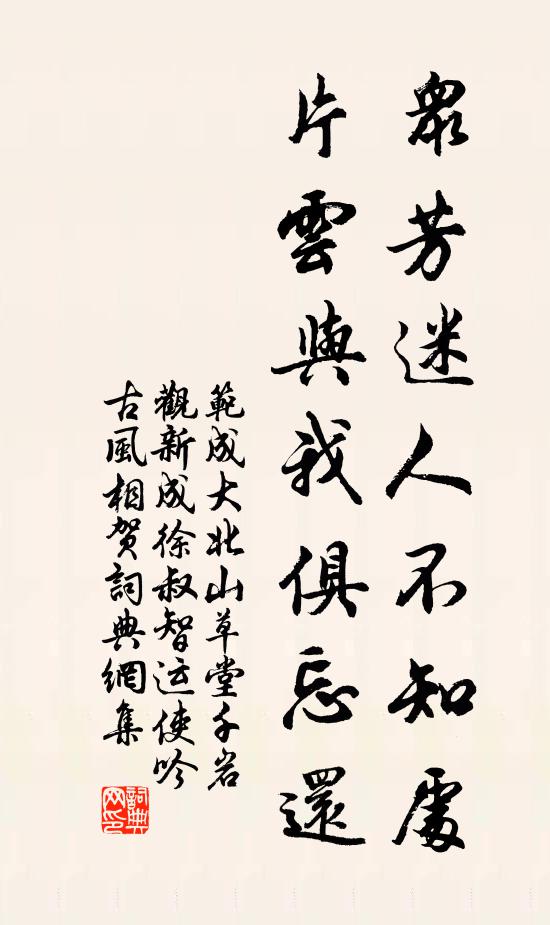 眾芳迷人不知處
片雲與我俱忘還
範成大北山草堂千岩
觀新成徐叔智运使吟
古風相贺詞典網集
詞典网印